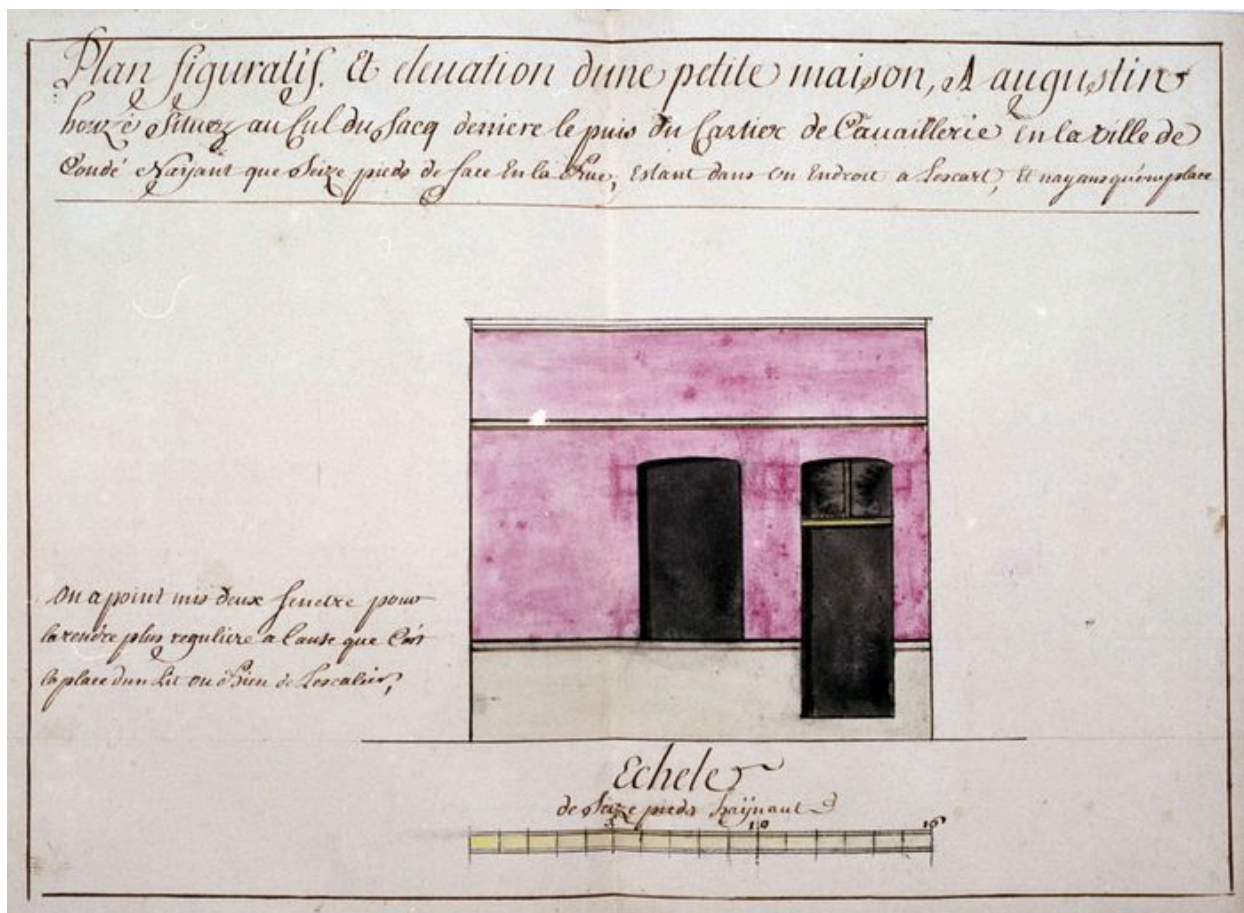 Plan figuratif. Et eleuation dune petite maison, A augustin
houzé Situez au Cul du Sacq deriere le puis du Cartier de Cauaillerie En la ville de
Condé Nayant que Seize pieds de face En la Rue, Estant dans un Endroit a Lescart, Et nayans qu'emplace
on a point mis deux fenetre pour
la rendre plus reguliere a Cause que C'est
la place d'un Lit ou Bien de Lescalier,
Echele
de Seize pieds haÿnaut
5 10 16